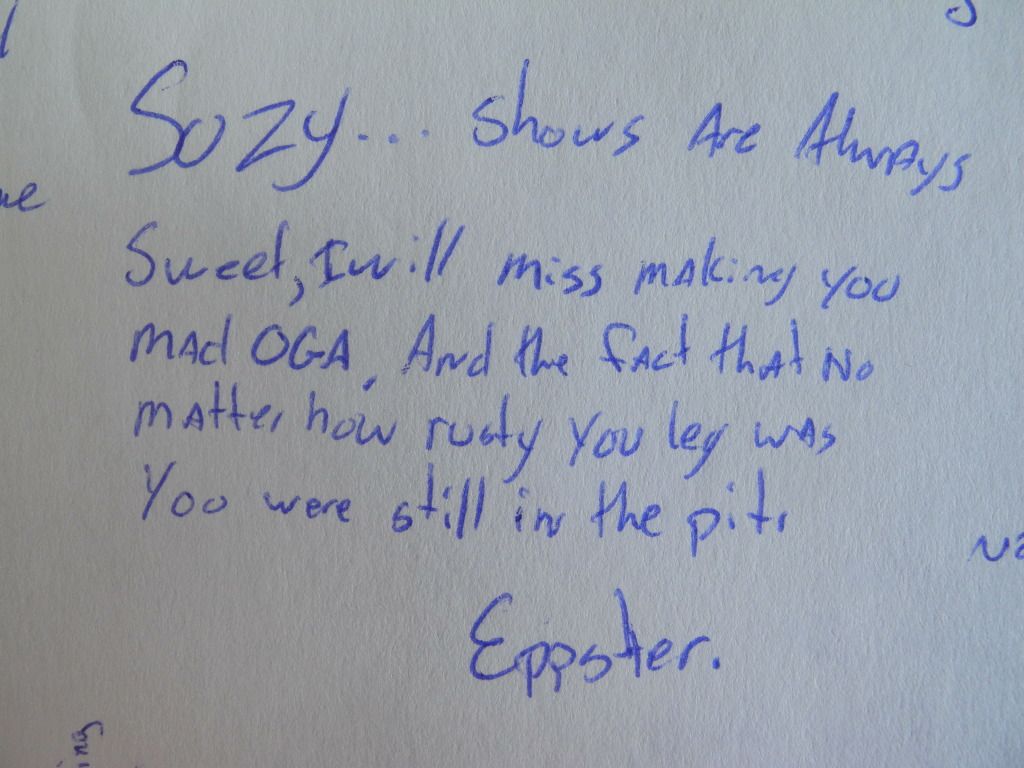 Sozy... Shows Are Always
Sweet, I will miss making you
mad OGA. And the fact that No
matter how rusty you leg was
You were still in the pit.
Eppster.